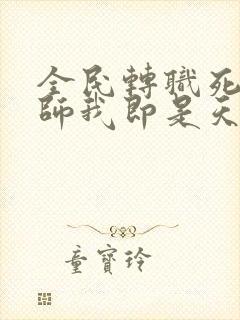 全民轉職死
師我即是天
童寶玲